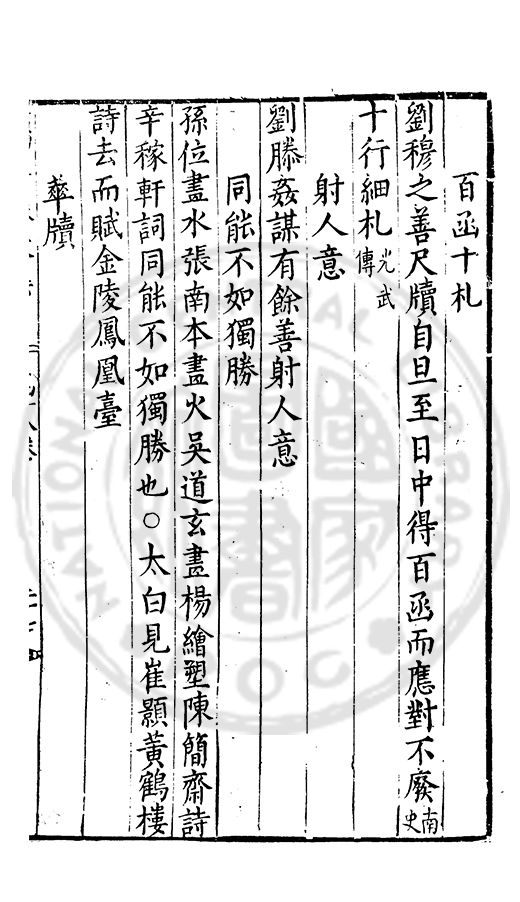 百函十札
劉穆之善尺牘自旦至日中得百函而應對不廢南史
十行細札光武傳
射人意
劉勝姦謀有餘善射人意
同能不如獨勝
孫位畫水張南本畫火吳道玄畫楊繪塑陳簡齋詩
辛稼軒詞同能不如獨勝也○太白見崔顥黃鶴樓
詩去而賦金陵鳳凰臺
牘